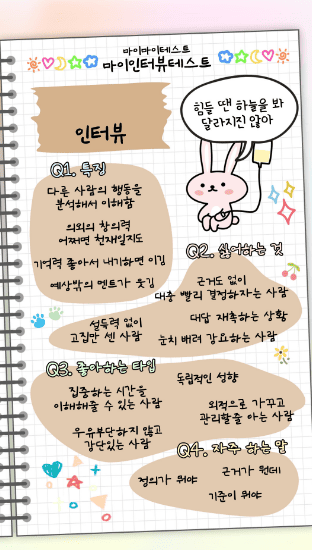 마이마이테스트
마이인터뷰테스트
힘들 땐 하늘을 봐
달라지진 않아
인터뷰
Q1. 특징
다른 사람의 행동을
분석해서 이해함
의외의 창의력
어쩌면 천재일지도
기억력 좋아서 내기하면 이김
예상밖의 멘트가 웃김
Q2. 싫어하는 것
근거도 없이
대충 빨리 결정하자는 사람
대답 재촉하는 상황
눈치 배려 강요하는 사람
설득력 없이
고집만 센 사람
Q3. 좋아하는 타입
집중하는 시간을
이해해줄 수 있는 사람
우유부단하지 않고
강단있는 사람
독립적인 성향
외적으로 가꾸고
관리할줄 아는 사람
Q4. 자주 하는 말
정의가 뭐야
근거가 뭔데
기준이 뭐야